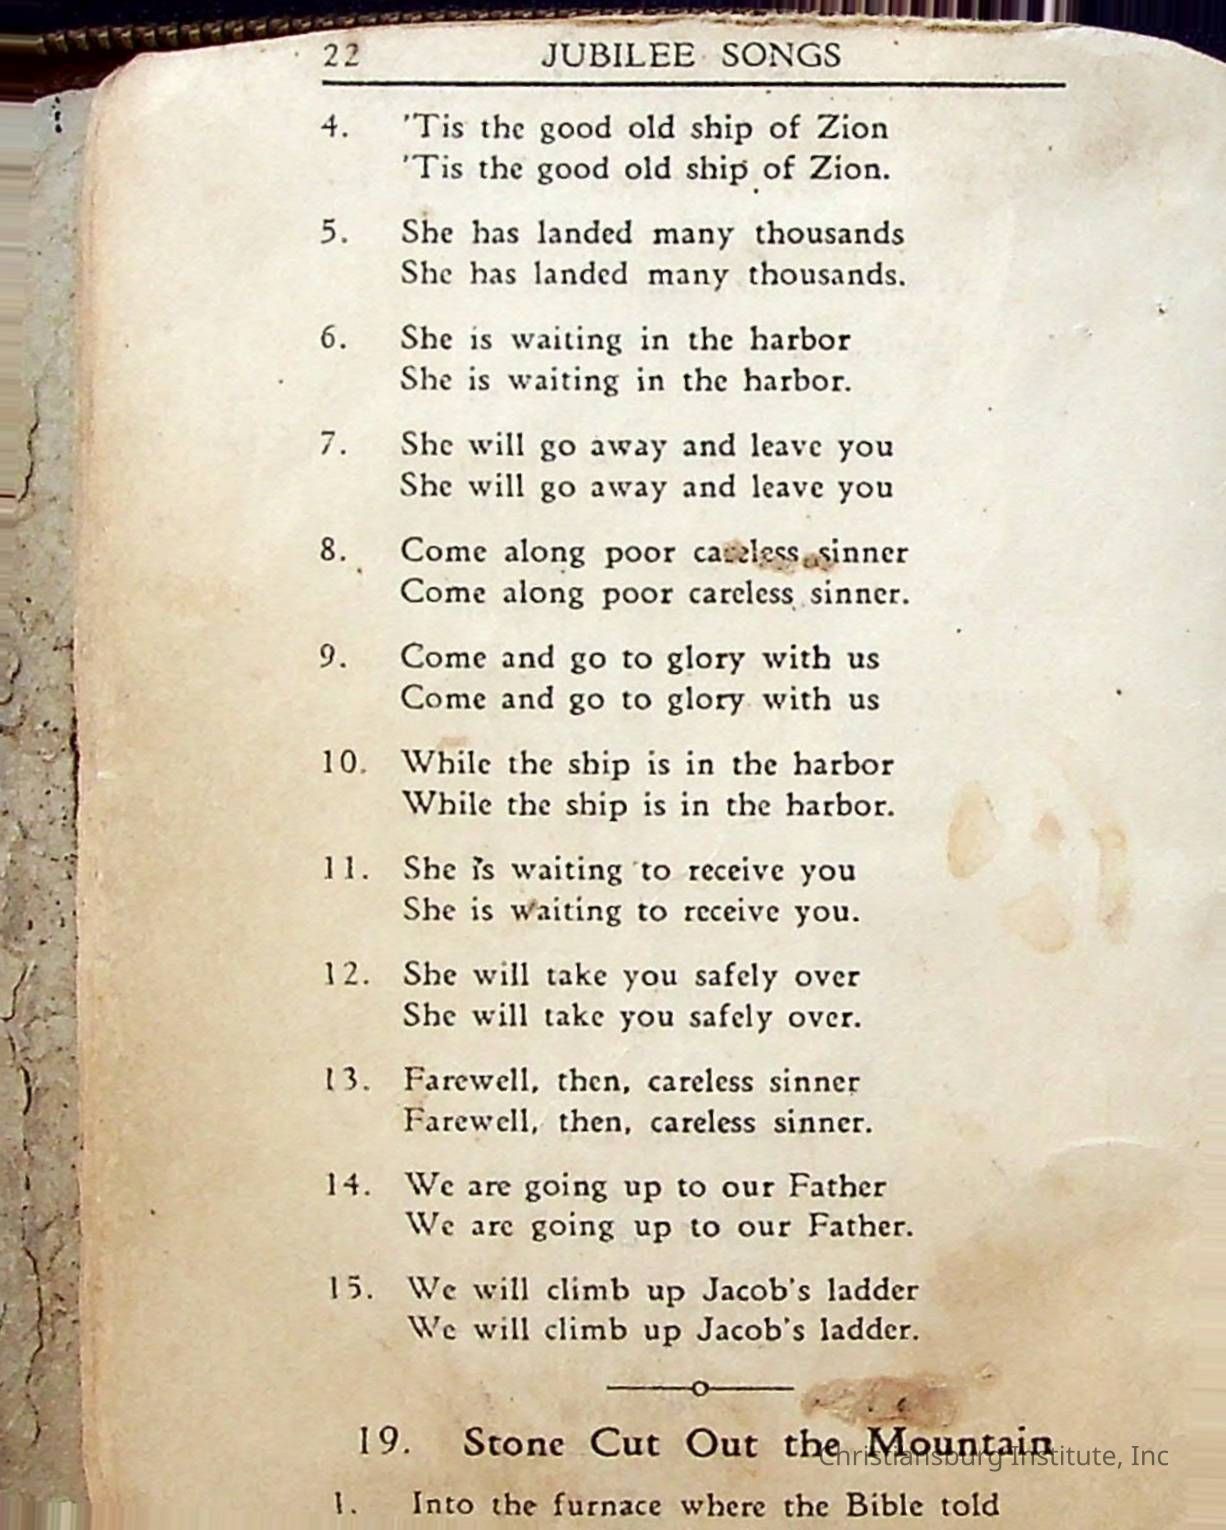 22 JUBILEE SONGS
4. 'Tis the good old ship of Zion
'Tis the good old ship of Zion.
5. She has landed many thousands
She has landed many thousands.
6. She is waiting in the harbor
She is waiting in the harbor.
7. She will go away and leave you
She will go away and leave you
8. Come along poor careless sinner
Come along poor careless sinner.
9. Come and go to glory with us
Come and go to glory with us
10. While the ship is in the harbor
While the ship is in the harbor.
11. She is waiting to receive you
She is waiting to receive you.
12. She will take you safely over
She will take you safely over.
13. Farewell, then, careless sinner
Farewell, then, careless sinner.
14. We are going up to our Father
We are going up to our Father.
15. We will climb up Jacob's ladder
We will climb up Jacob's ladder.
19. Stone Cut Out the Mountain
Christiansburg Institute, Inc
1. Into the furnace where the Bible told